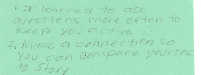 1. I learned to ask
questions more often to
keep you active
2. Make a connection so
you can compare yourself
to Story